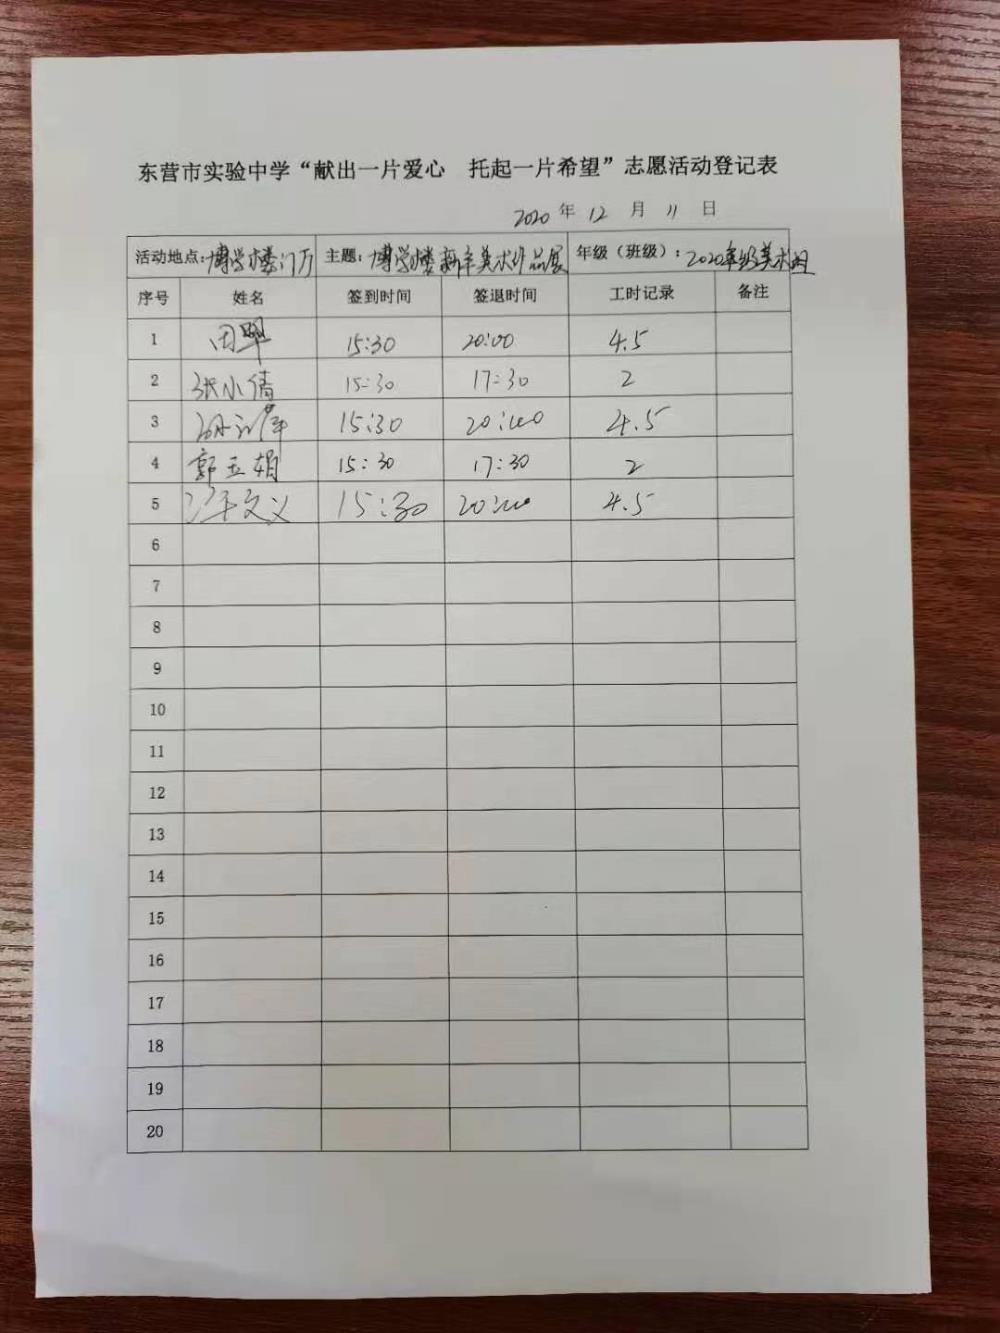 东营市实验中学“献出一片爱心 托起一片希望”志愿活动登记表
2020年12月11日
活动地点:博学楼门厅 主题:博学楼新年美术作品展 年级(班级):2020年级美术组
序号 姓名 签到时间 签退时间 工时记录 备注
1 田 15:30 20:00 4.5
2 张小倩 15:30 17:30 2
3 15:30 20:00 4.5
4 郭玉娟 15:30 17:30 2
5 汪文义 15:30 20:00 4.5
6
7
8
9
10
11
12
13
14
15
16
17
18
19
20